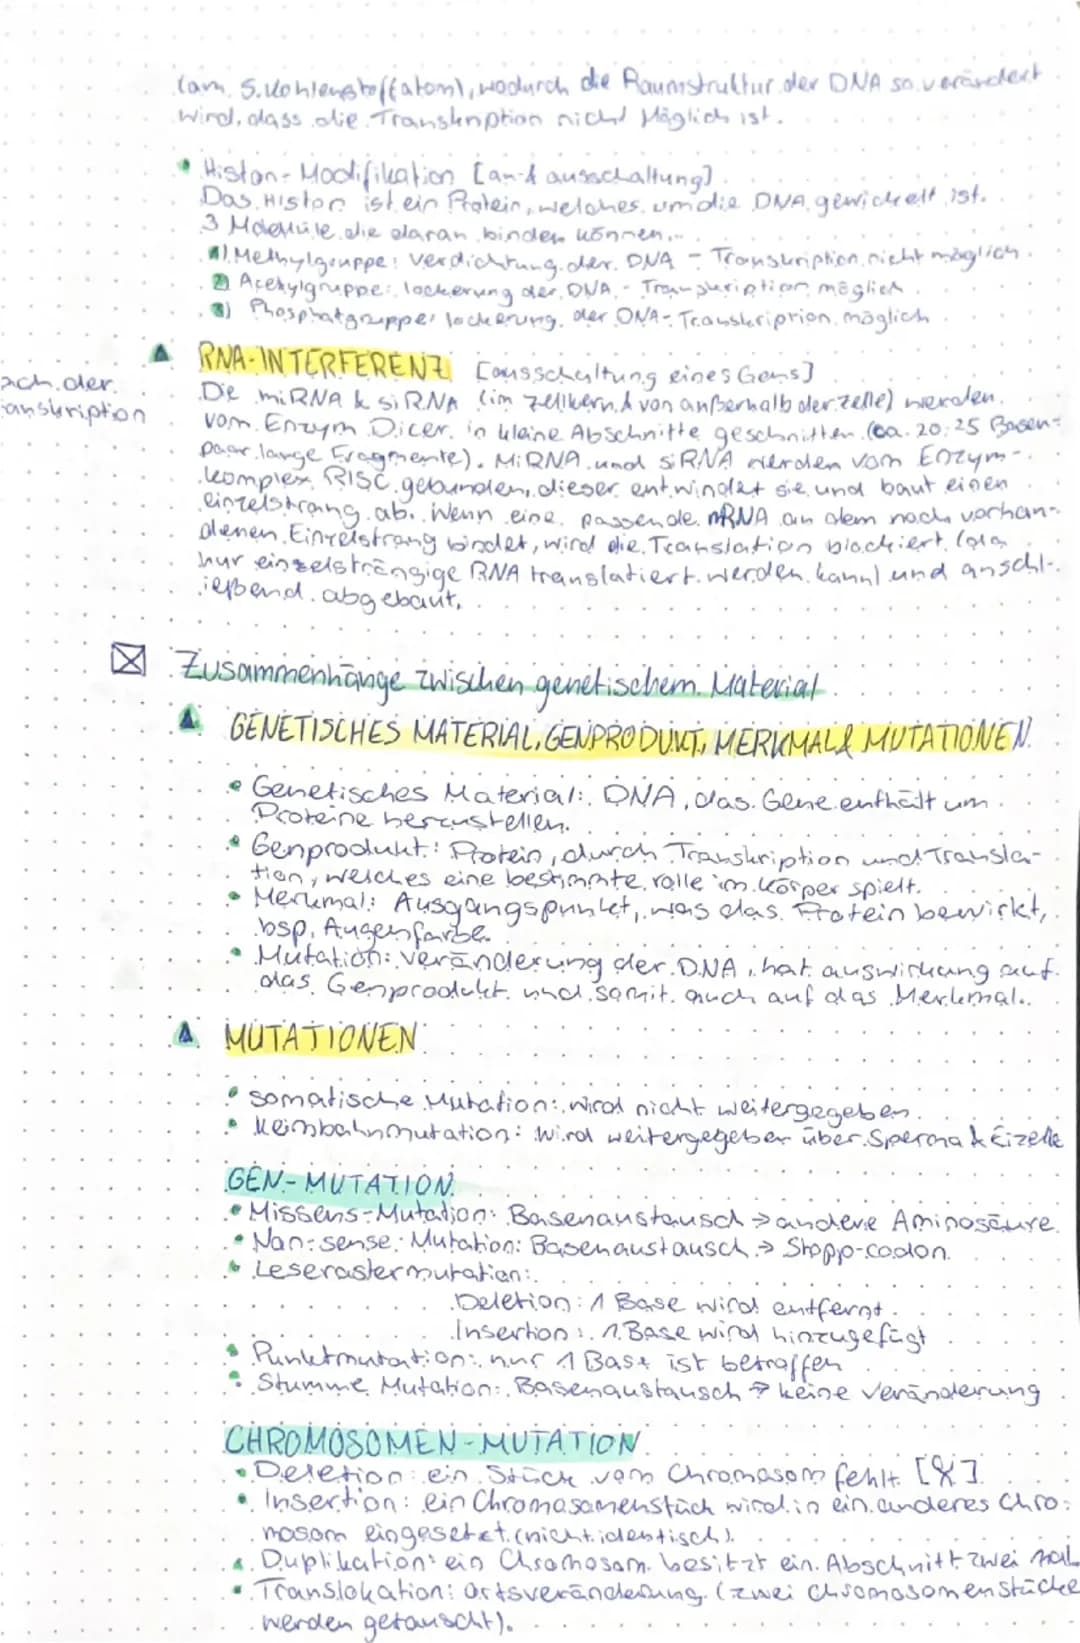 (am 5. Kohlenstoffatom), wodurch die Raumstruktur der DNA so verändert
wird, dass die Transkription nicht Möglich ist.
• Histon-Modifikation [an-& ausschaltung]
Das Histon ist ein Protein, welches um die DNA gewickelt ist.
3 Moleküle die daran binden können...
1) Methylgruppe: Verdichtung der DNA - Transkription nicht möglich.
2) Acetylgruppe: lockerung der DNA - Transkription möglich
3) Phosphatgruppe: lockerung der DNA - Transkription möglich
RNA-INTERFERENZ [ausschaltung eines Gens]
ach der
anskription
Die miRNA & siRNA (im Zellkern & von außerhalb der Zelle) werden
vom Enzym Dicer in kleine Abschnitte geschnitten (ca. 20-25 Basen-
paar lange Fragmente). MiRNA und siRNA werden vom Enzym-
komplex RISC gebunden, dieser entwindet sie und baut einen
einzelstrang ab. Wenn eine passende mRNA an dem noch vorhan-
denen Einzelstrang bindet, wird die Translation blockiert (da
nur einzelsträngige RNA translatiert werden kann) und anschl-
ießend abgebaut.
Zusammenhänge zwischen genetischem Material
GENETISCHES MATERIAL, GENPRODUKT, MERKMAL & MUTATIONEN
• Genetisches Material: DNA, das Gene enthält um
Proteine herzustellen.
• Genprodukt: Protein, durch Transkription und Transla-
tion, welches eine bestimmte rolle im Körper spielt.
• Merkmal: Ausgangspunkt, was das Protein bewirkt,
bsp. Augenfarbe.
• Mutation: veränderung der DNA, hat auswirkung auf
das Genprodukt und somit auch auf das Merkmal.
MUTATIONEN
• somatische Mutation: wird nicht weitergegeben
• Keimbahnmutation: wird weitergegeben über Sperma & Eizelle
GEN-MUTATION
• Missens-Mutation: Basenaustausch → andere Aminosäure
• Non-sense-Mutation: Basenaustausch → Stopp-codon
• Leserastermutation:
Deletion: 1 Base wird entfernt
Insertion: 1 Base wird hinzugefügt
• Punktmutation: nur 1 Base ist betroffen
• Stumme Mutation: Basenaustausch → keine Veränderung
CHROMOSOMEN-MUTATION
• Deletion: ein Stück vom Chromosom fehlt
• Insertion: ein Chromosomenstück wird in ein anderes Chro-
mosom eingesetzt (nicht identisch).
• Duplikation: ein Chromosom besitzt ein Abschnitt zwei mal
• Translokation: Ortsveränderung (zwei Chromosomenstücke
werden getauscht).